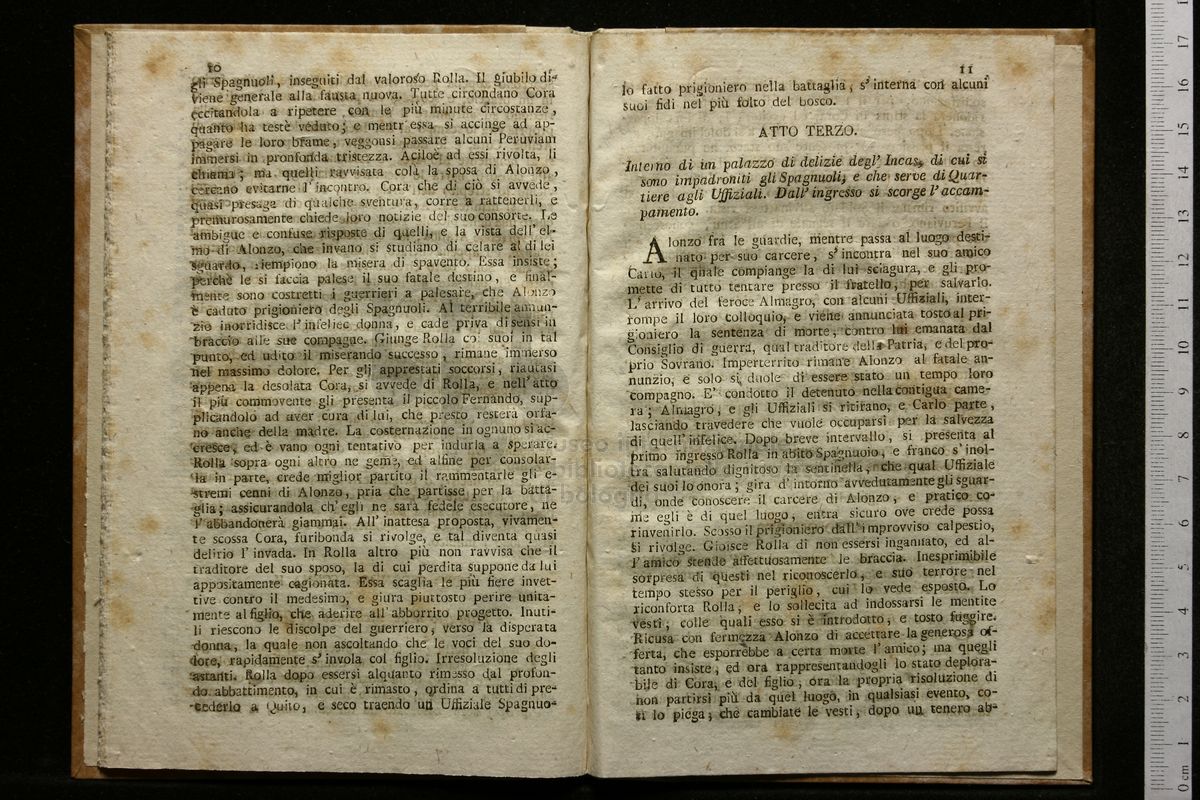 10
gli Spagnuoli, inseguiti dal valoroso Rolla. Il giubilo di-
viene generale alla fausta nuova. Tutte circondano Cora
eccitandola a ripetere con le più minute circostanze,
quanto ha testè veduto; e mentr'essa si accinge ad ap-
pagare le loro brame, veggonsi passare alcuni Peruviani
immersi in pronfonda tristezza. Aciloè ad essi rivolta, li
chiama; ma quelli ravvisata colà la sposa di Alonzo,
cercano evitarne l'incontro. Cora che di ciò si avvede,
quasi presaga di qualche sventura, corre a rattenerli, e
premurosamente chiede loro notizie del suo consorte. Le
ambigue e confuse risposte di quelli, e la vista dell'el-
mo di Alonzo, che invano si studiano di celare al di lei
sguardo, riempiono la misera di spavento. Essa insiste;
perchè le si faccia palese il suo fatale destino, e final-
mente sono costretti i guerrieri a palesare, che Alonzo
è caduto prigioniero degli Spagnuoli. Al terribile annun-
zio inorridisce l'infelice donna, e cade priva di sensi in
braccio alle sue compague. Giunge Rolla coi suoi in tal
punto, ed udito il miserando successo, rimane immerso
nel massimo dolore. Per gli apprestati soccorsi, riautasi
appena la desolata Cora, si avvede di Rolla, e nell'atto
il più commovente gli presenta il piccolo Fernando, sup-
plicandolo ad aver cura di lui, che presto resterà orfa-
no anche della madre. La costernazione in ognuno si ac-
cresce, ed è vano ogni tentativo per indurla a sperare.
Rolla sopra ogni altro ne geme, ed alfine per consolar-
la in parte, crede miglior partito il rammentarle gli e-
stremi cenni di Alonzo, pria che partisse per la batta-
glia; assicurandola ch'egli ne sarà fedele esecutore, ne
l'abbandonerà giammai. All'inattesa proposta, vivamen-
te scossa Cora, furibonda si rivolge, e tal diventa quasi
delirio l'invada. In Rolla altro più non ravvisa che il
traditore del suo sposo, la di cui perdita suppone da lui
appositamente cagionata. Essa scaglia le più fiere invet-
tive contro il medesimo, e giura piuttosto perire unita-
mente al figlio, che aderire all'abborrito progetto. Inuti-
li riescono le discolpe del guerriero, verso la disperata
donna, la quale non ascoltando che le voci del suo do-
lore, rapidamente s'invola col figlio. Irresoluzione degli
astanti. Rolla dopo essersi alquanto rimesso dal profon-
do abbattimento, in cui è rimasto, ordina a tutti di pre-
cederlo a Quito, e seco traendo un Uffiziale Spagnuo-
11
lo fatto prigioniero nella battaglia, s'interna con alcuni
suoi fidi nel più folto del bosco.
ATTO TERZO.
Interno di un palazzo di delizie degl'Incas, di cui si
sono impadroniti gli Spagnuoli, e che serve di Quar-
tiere agli Uffiziali. Dall'ingresso si scorge l'accam-
pamento.
Alonzo fra le guardie, mentre passa al luogo desti-
nato per suo carcere, s'incontra nel suo amico
Carlo, il quale compiange la di lui sciagura, e gli pro-
mette di tutto tentare presso il fratello, per salvarlo.
L'arrivo del feroce Almagro, con alcuni Uffiziali, inter-
rompe il loro colloquio, e viene annunciata tosto al pri-
gioniero la sentenza di morte, contro lui emanata dal
Consiglio di guerra, qual traditore della Patria, e del pro-
prio Sovrano. Imperterrito rimane Alonzo al fatale an-
nunzio, e solo si duole di essere stato un tempo loro
compagno. E' condotto il detenuto nella contigua came-
ra; Almagro, e gli Uffiziali si ritirano, e Carlo parte,
lasciando travedere che vuole occuparsi per la salvezza
di quell'infelice. Dopo breve intervallo, si presenta al
primo ingresso Rolla in abito Spagnuolo, e franco s'inol-
tra salutando dignitoso la sentinella, che qual Uffiziale
dei suoi lo onora; gira d'intorno avvedutamente gli sguar-
di, onde conoscere il carcere di Alonzo, e pratico co-
me egli è di quel luogo, entra sicuro ove crede possa
rinvenirlo. Scosso il prigioniero dall'improvviso calpestio,
si rivolge. Gioisce Rolla di non essersi ingannato, ed al-
l'amico stende affettuosamente le braccia. Inesprimibile
sorpresa di questi nel riconoscerlo, e suo terrore nel
tempo stesso per il periglio, cui lo vede esposto. Lo
riconforta Rolla, e lo sollecita ad indossarsi le mentite
vesti, colle quali esso si è introdotto, e tosto fuggire.
Ricusa con fermezza Alonzo di accettare la generosa of-
ferta, che esporrebbe a certa morte l'amico; ma quegli
tanto insiste, ed ora rappresentandogli lo stato deplora-
bile di Cora, e del figlio, ora la propria risoluzione di
non partirsi più da quel luogo, in qualsiasi evento, co-
sì lo piega; che cambiate le vesti, dopo un tenero ab-